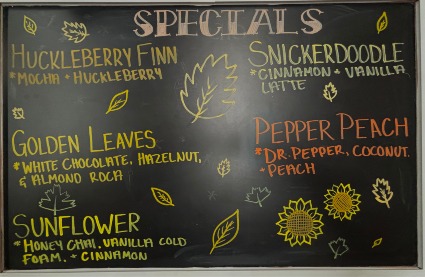 SPECIALS
HUCKLEBERRY FINN
*MOCHA + HUCKLEBERRY
GOLDEN LEAVES
*WHITE CHOCOLATE, HAZELNUT,
& ALMOND ROCA
SUNFLOWER
*HONEY CHAI, VANILLA COLD
FOAM. + CINNAMON
SNICKERDOODLE
*CINNAMON + VANILLA
LATTE
PEPPER PEACH
*DR. PEPPER, COCONUT.
+ PEACH